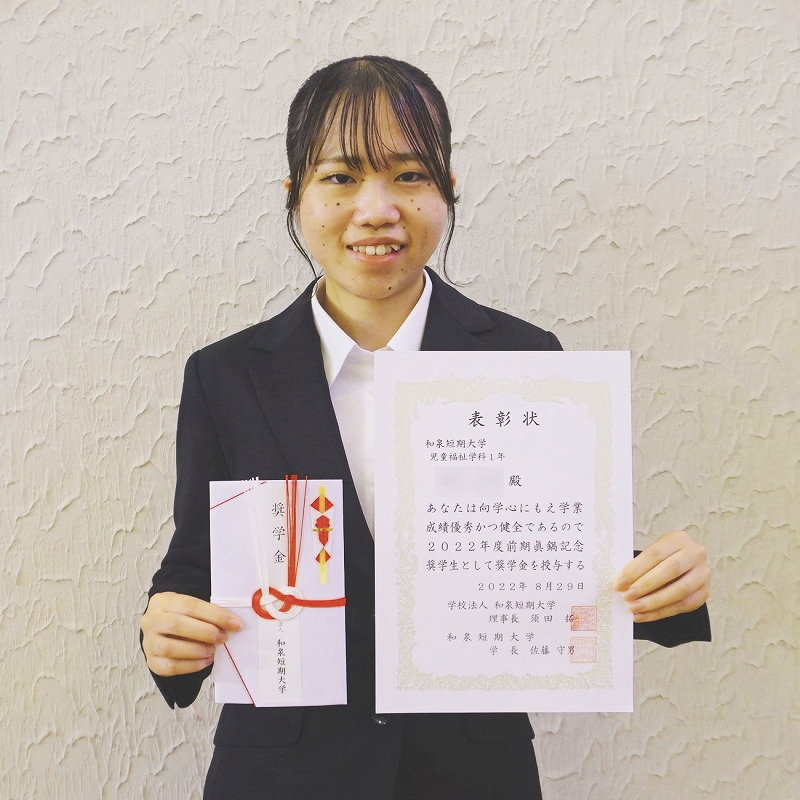 表彰状
和泉短期大学
児童福祉学科１年
殿
あなたは向学心にもえ学業
成績優秀かつ健全であるので
２０２２年度前期眞鍋記念
奨学生として奨学金を授与する
２０２２年 ８月２９日
学校法人 和泉短期大学
理事長 須田 拓
和泉短期大学
学長 佐藤 守男
奨学金
和泉短期大学